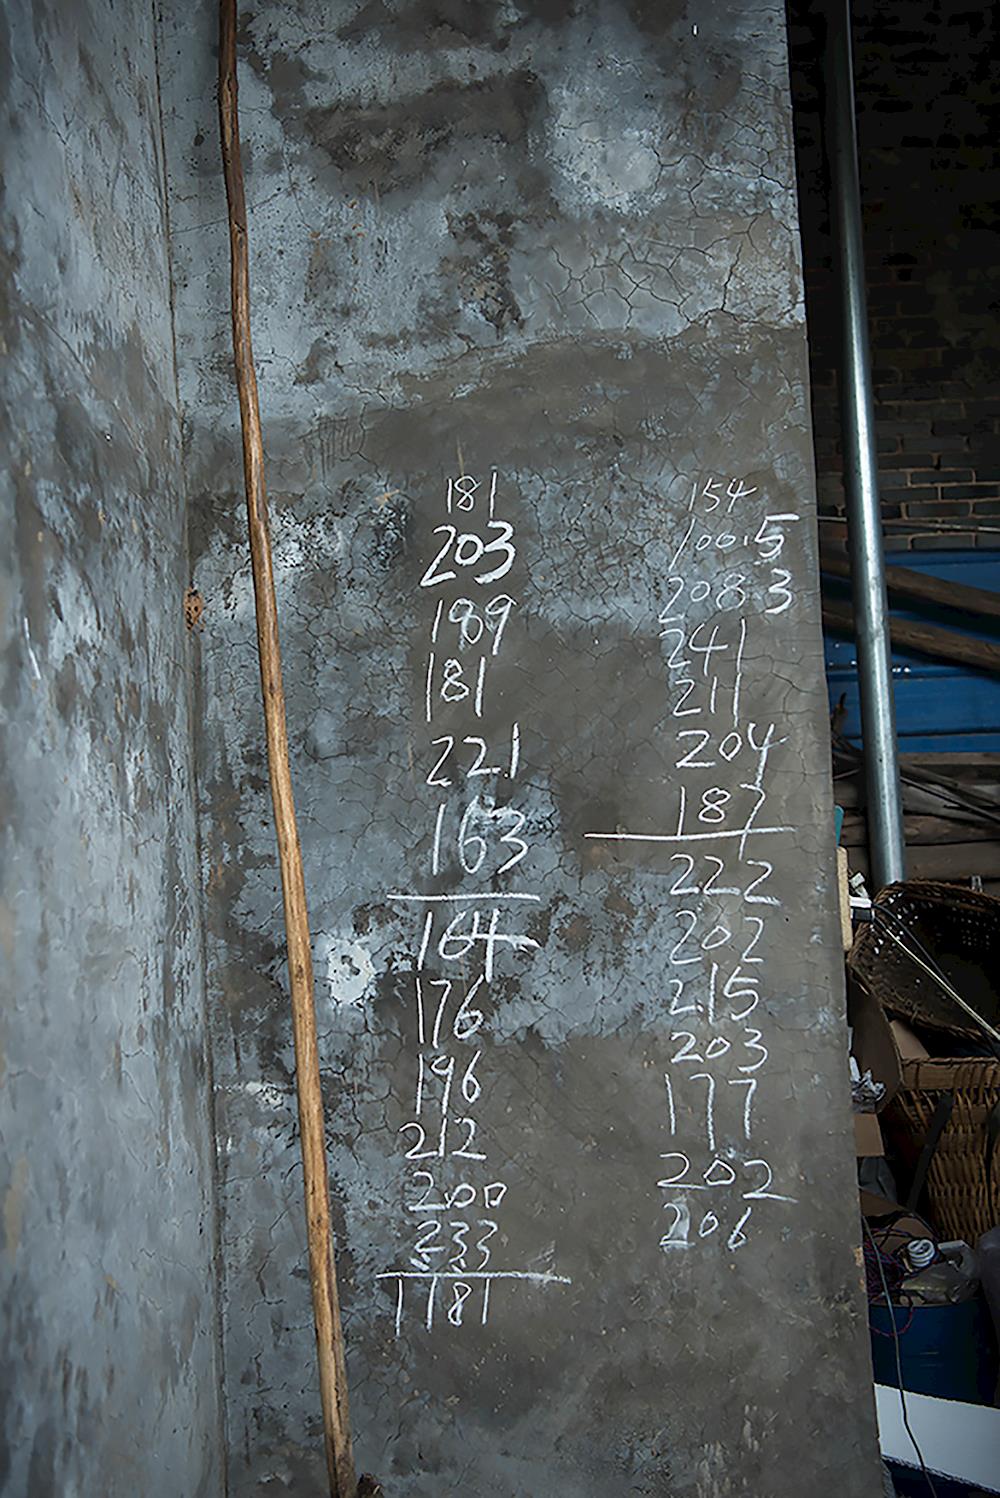 181
203
189
181
221
163
164
176
196
212
200
233
1181
154
100.5
208.3
241
211
204
187
222
202
215
203
177
202
206